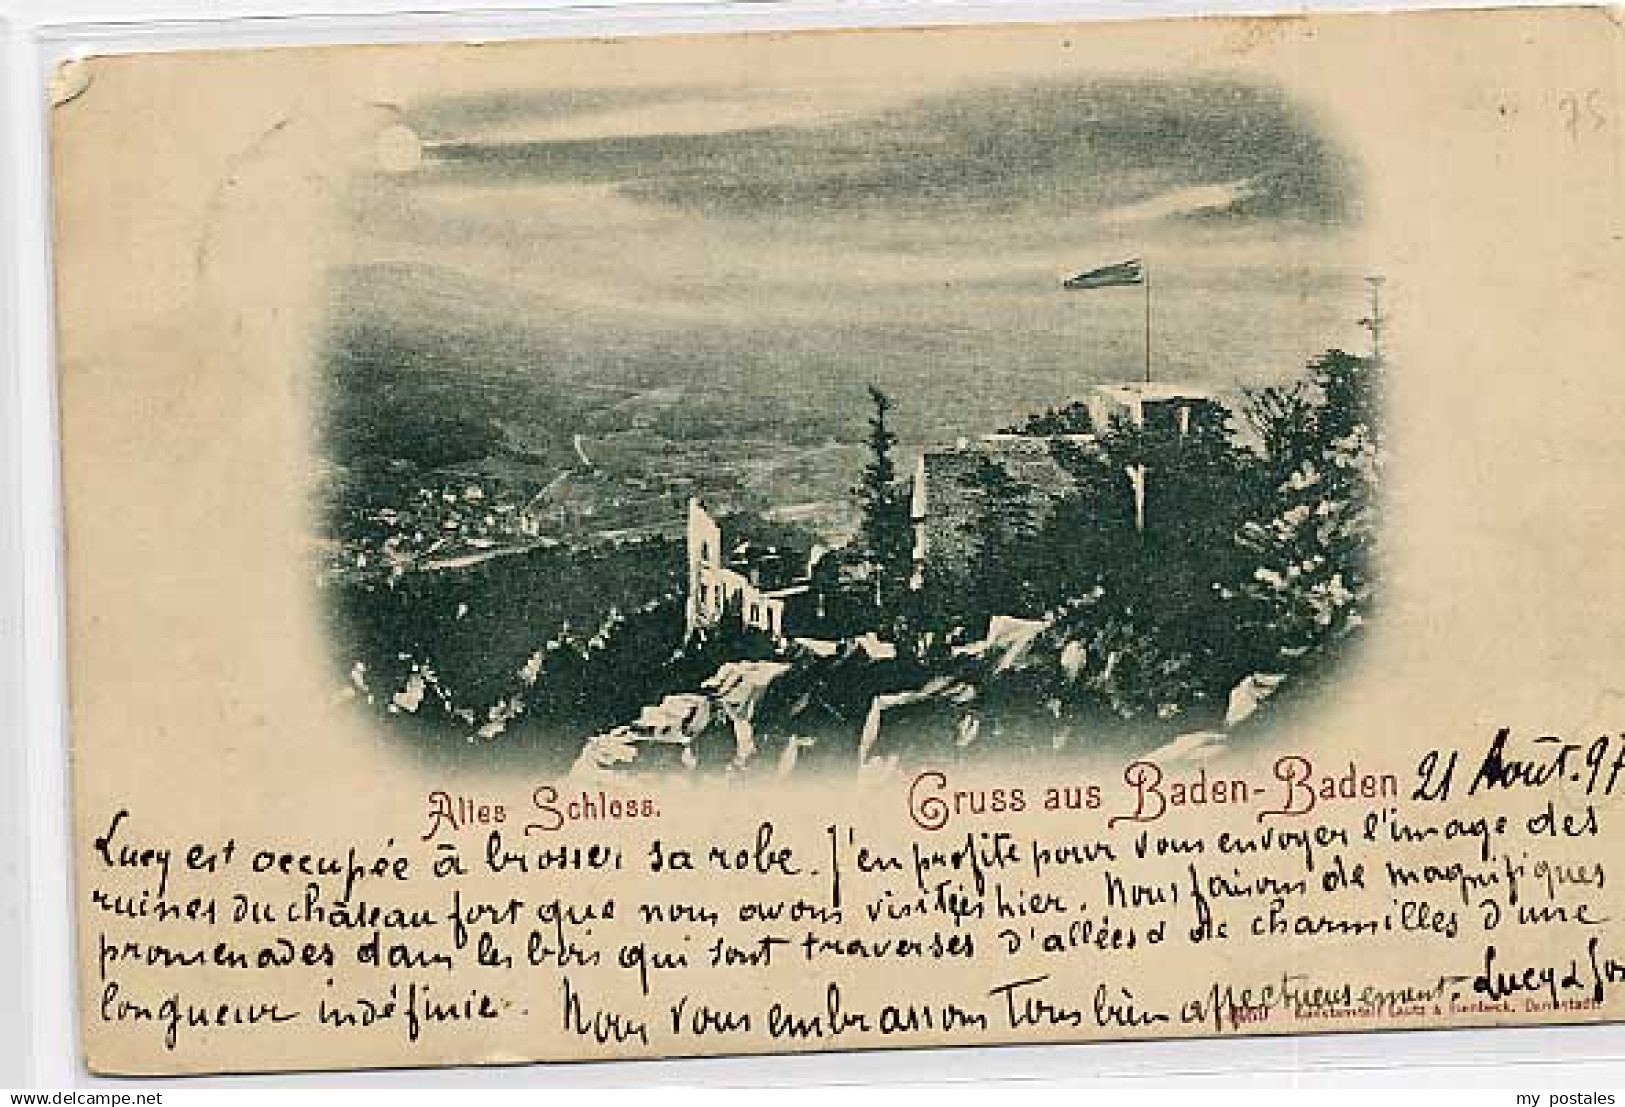 75
Altes Schloss.
Gruss aus Baden-Baden 21 Août. 97
Lucy est occupée à brosser sa robe. J'en profite pour vous envoyer l'image des
ruines du château fort que nous avons visitées hier. Nous faisons de magnifiques
promenades dans les bois qui sont traversés d'allées & de charmilles d'une
longueur indéfinie. Nous vous embrassons Tous bien affectueusement. Lucy &
Kunstanstalt Lautz & Darmstadt
delcampe.net
my_postales